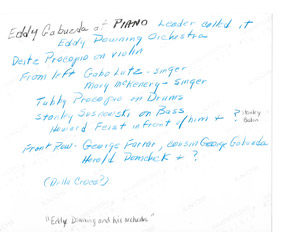 Eddy Gabueda at PIANO Leader called it
Eddy Downing Orchestra
Deitz Procopio on violin
From left Gabo Lutz - singer
Mary McKenery - singer
Tubby Procopio on Drums
Stanley Sosnowski on Bass
Howard Feist in front of him + ? Stanley
Front Row - George Farar, cousin George Gabueda
Harold Domchick + ?
(Dillo Croco?)
"Eddy Downing and his orchestra"